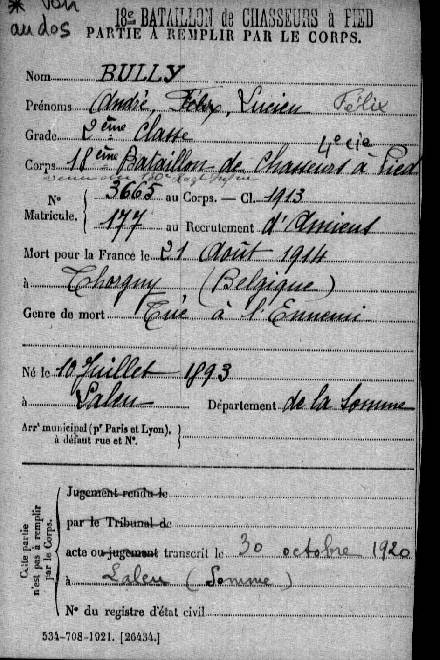 * Voir
au dos
18e BATAILLON de CHASSEURS à PIED
PARTIE À REMPLIR PAR LE CORPS.
Nom BULLY
Prénoms André, Félix, Lucien Félix
Grade 2ème Classe
4e Cie
Corps 18ème Bataillon de Chasseurs à Pied
N° 3665 au Corps. — Cl. 1913
Matricule. 177 au Recrutement d'Amiens
Mort pour la France le 21 Août 1914
à Thorgny (Belgique)
Genre de mort Tué à l'Ennemi
Né le 10 Juillet 1893
à Laleu Département de la Somme
Arrt municipal (pr Paris et Lyon),
à défaut rue et N°.
Cette partie
n'est pas à remplir
par le Corps.
Jugement rendu le
par le Tribunal de
acte ou jugement transcrit le 30 octobre 1920
à Laleu (Somme)
N° du registre d'état civil
534-708-1921. [26434.]